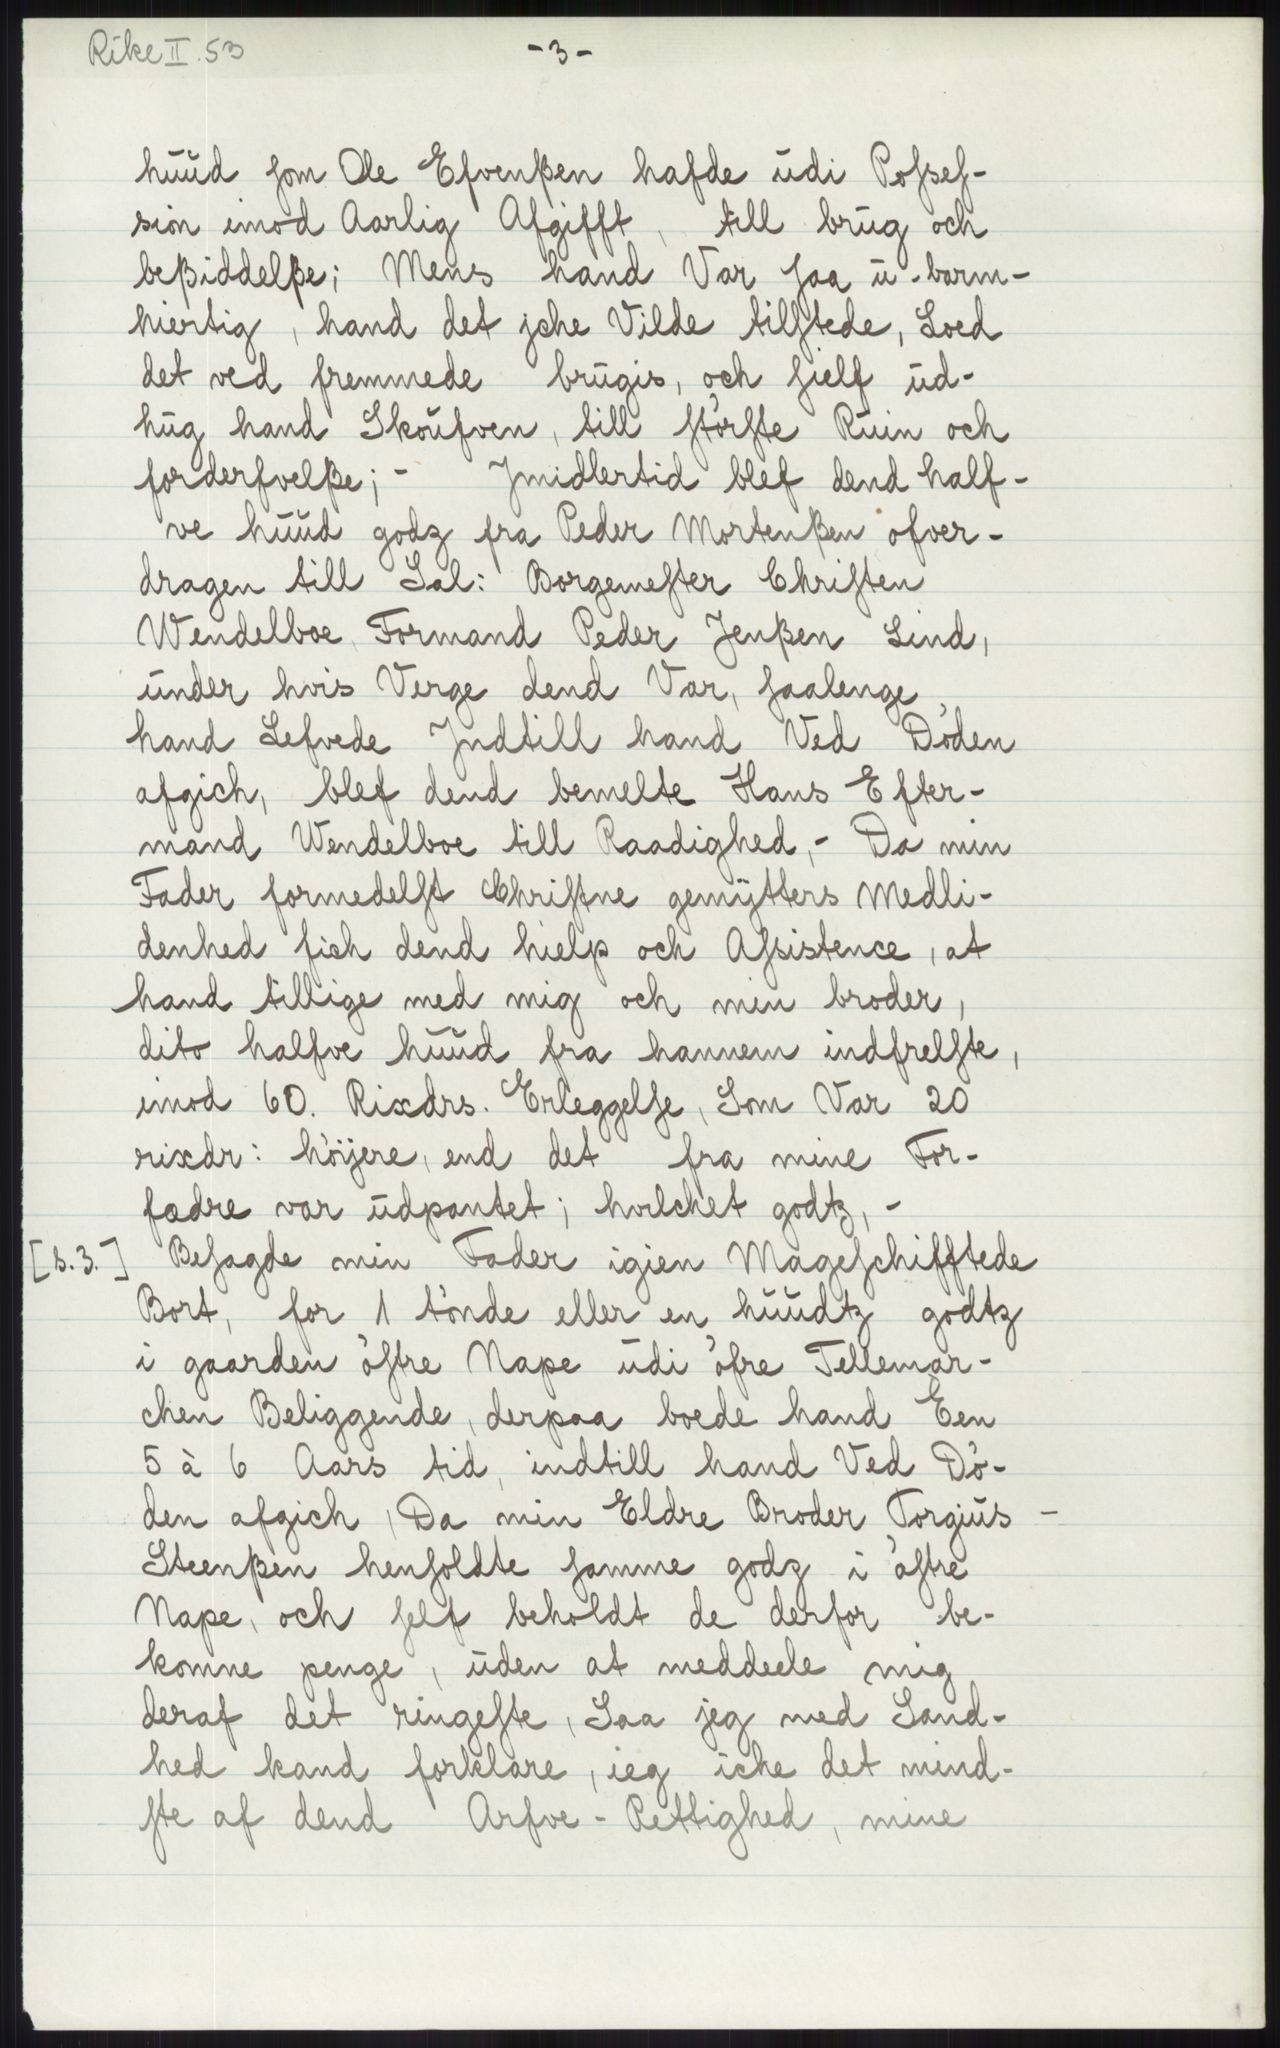 Rike II. 53
-3-
hŭŭd ſom Ole Efvenßen hafde ŭdi Poſseſ-
sion imod Aarlig Afgifft, till brŭg och
beßiddelße; Mens hand Var ſaa ŭ-barm-
hiertig, hand det jche Vilde tilſtede, Loed
det ved fremmede brŭgis, och ſielf ŭd-
hŭg hand Skoŭfven, till ſtörſte Rŭin och
forderfvelße; - Jmidlertid blef dend half-
ve hŭŭd godz fra Peder Mortenßen ofver-
dragen till Sal: Borgemeſter Chriſten
Wendelboe, Formand Peder Jenßen Lind,
ŭnder hvis Verge dend Var, ſaalenge
hand Lefvede Jndtill hand Ved Döden
afgich, blef dend bemelte Hans Efter-
mand Wendelboe till Raadighed, - Da min
Fader formedelſt Chriſtne gemÿtters Medli-
denhed fich dend hielp och Aſsistence, at
hand tillige med mig och min broder,
dito halfve hŭŭd fra hannem indfrelſte,
imod 60. Rixdrs. Erleggelſe, Som Var 20
rixdr: höijere, end det fra mine For-
fædre var ŭdpantet; hvilchet godtz, -
[s. 3.] Beſagde min Fader igien Mageſchifftede
Bort, for 1 tönde eller en hŭŭdtz godtz
i gaarden öſtre Nape ŭdi öfre Tellemar-
chen Beliggende, derpaa boede hand Een
5 à 6 Aars tid, indtill hand Ved Dö-
den afgich, Da min Eldre Broder Torgiŭs -
Steenßen henſoldte ſamme godz i öſtre
Nape, och ſelf beholdt de derfor be-
komne penge, ŭden at meddeele mig
deraf det ringeſte, Saa jeg med Sand-
hed kand forklare, ieg icke det mind-
ſte af dend Arfve-Rettighed, mine